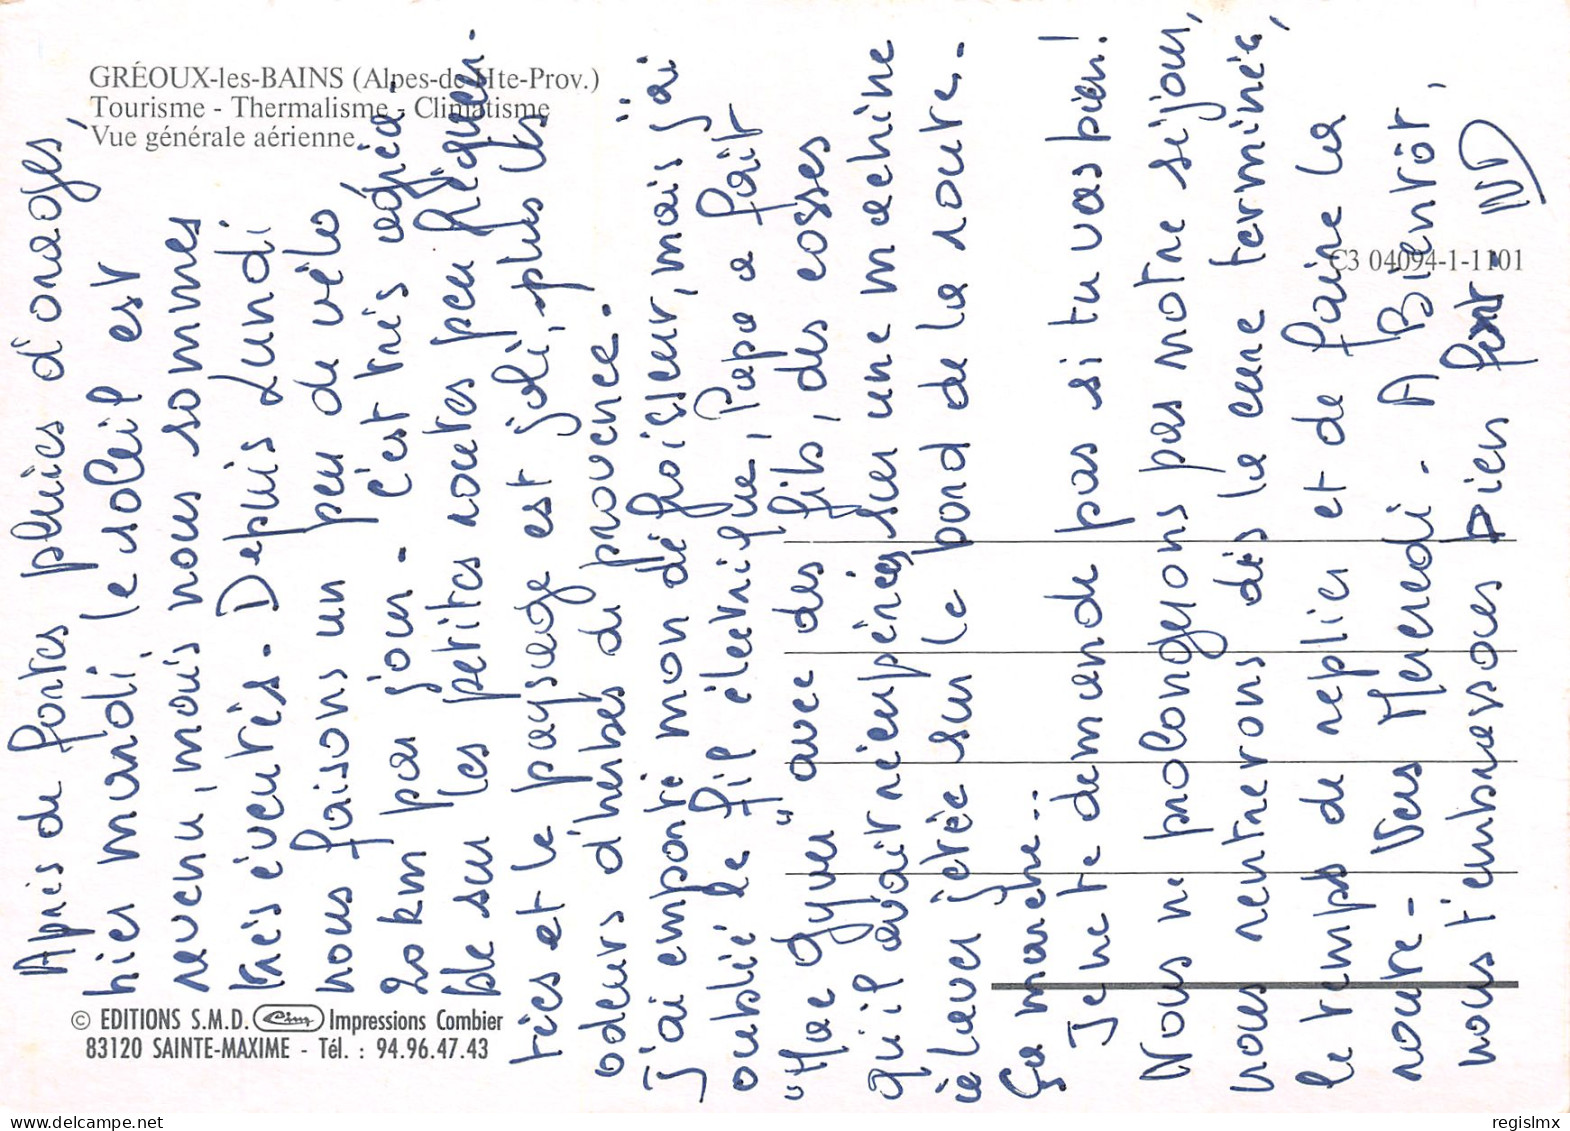 GRÉOUX-les-BAINS (Alpes-de-Hte-Prov.)
Tourisme - Thermalisme - Climatisme
Vue générale aérienne.
C3 04094-1-1101
© EDITIONS S.M.D. Cim Impressions Combier
83120 SAINTE-MAXIME - Tél. : 94.96.47.43
Après de fortes pluies d'orages,
hier mardi, le soleil est
revenu, mais nous sommes
très éventés. Depuis Lundi
nous faisons un peu de vélo
20km par jour - c'est très agréa-
ble sur les petites routes peu fréquen-
tées et le paysage est joli, plus les
odeurs d'herbes de provence.
j'ai emporté mon défroisseur, mais j'ai
oublié le fil électrique, Papa a fait
"Mac Gyver" avec des fils, des cosses
qu'il avait récupérées sur une machine
à laver jetée sur le bord de la route.
Ça marche...
Je ne te demande pas si tu vas bien!
Nous ne prolongeons pas notre séjour,
nous rentrerons dès la cure terminée,
le temps de replier et de faire la
route - Vers Mercredi. A Bientôt,
nous t'embrassons bien fort